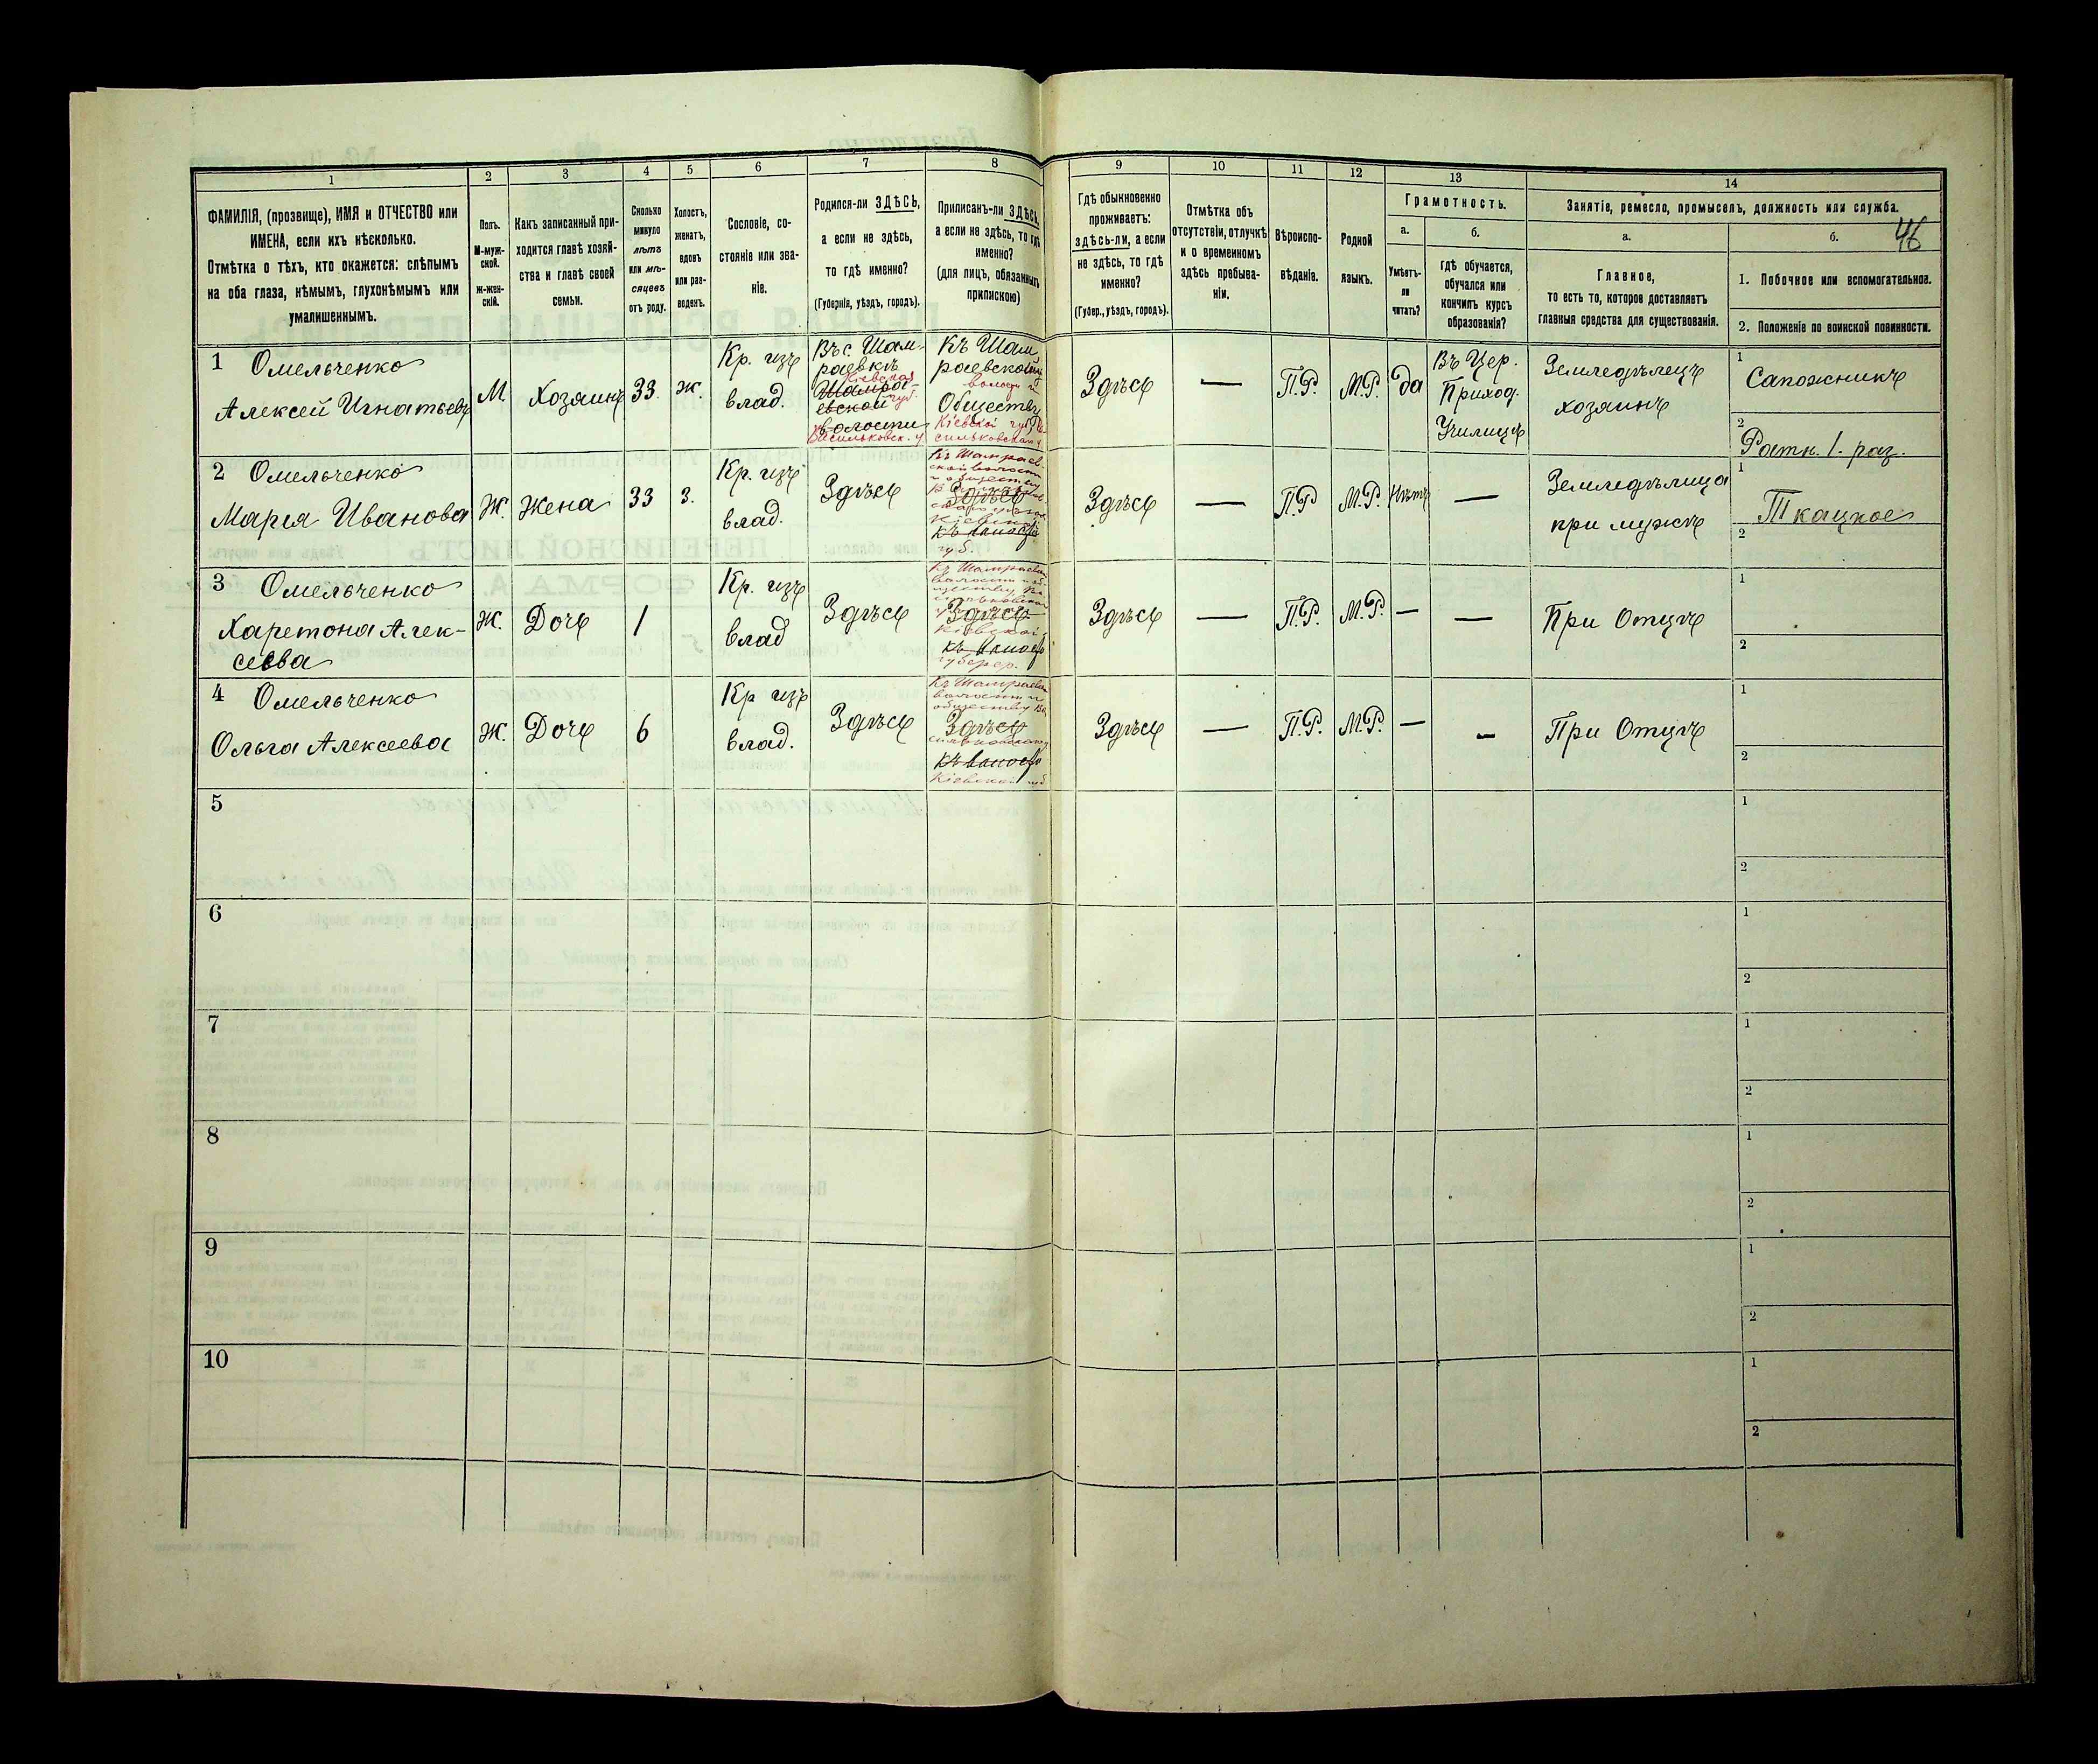 46
1
2
3
4
5
6
7
8
9
10
11
12
13
14
ФАМИЛІЯ, (прозвище), ИМЯ и ОТЧЕСТВО или
ИМЕНА, если ихъ нѣсколько.
Отмѣтка о тѣхъ, кто окажется: слѣпымъ
на оба глаза, нѣмымъ, глухонѣмымъ или
умалишеннымъ.
Полъ.
М-муж-
ской.
Ж-жен-
скій.
Какъ записанный при-
ходится главѣ хозяй-
ства и главѣ своей
семьи.
Сколько
минуло
лѣтъ
или мѣ-
сяцевъ
отъ роду.
Холостъ,
женатъ,
вдовъ
или раз-
веденъ.
Сословіе, со-
стояніе или зва-
ніе.
Родился-ли ЗДѢСЬ,
а если не здѣсь,
то гдѣ именно?
(Губернія, уѣздъ, городъ).
Приписанъ-ли ЗДѢСЬ,
а если не здѣсь, то гдѣ
именно?
(для лицъ, обязанныхъ
припискою)
Гдѣ обыкновенно
проживаетъ:
здѣсь-ли, а если
не здѣсь, то гдѣ
именно?
(Губер., уѣздъ, городъ).
Отмѣтка объ
отсутствіи, отлучкѣ
и о временномъ
здѣсь пребыва-
ніи.
Вѣроиспо-
вѣданіе.
Родной
языкъ.
Грамотность.
а.
Умѣетъ-
ли
читать?
б.
гдѣ обучается,
обучался или
кончилъ курсъ
образованія?
Занятіе, ремесло, промыселъ, должность или служба.
а.
Главное,
то есть то, которое доставляетъ
главныя средства для существованія.
б.
1. Побочное или вспомогательное.
2. Положеніе по воинской повинности.
1 Омельченко
Алексей Игнатьевъ
М.
Хозяинъ
33.
Ж.
Кр. изъ
влад.
Въ с. Шам-
раевкѣ
Кіевская
губ.
волости
Васильковск. у
Къ Шам
раевской
волости и
Обществу
Кіевской губ. Ва
сильковскаго у.
Здѣсь
—
П.Р.
М.Р.
да
Въ Цер.
Приход.
Училищѣ
Земледѣлецъ
хозяинъ
1
Сапожникъ
2
Ратн. 1. раз.
2 Омельченко
Мария Иванова
Ж.
Жена
33
З.
Кр. изъ
влад.
Здѣсь
Къ Шамраев
ской волости
и обществу
Здѣсь
губ.
Здѣсь
—
П.Р
М.Р.
Нѣтъ
—
Земледѣлица
при мужѣ
1
Ткацкое
2
3 Омельченко
Харетона Алек-
сеева
Ж.
Дочь
1
Кр. изъ
влад
Здѣсь
Къ Шамраевск
волости и об-
ществу Ва
Здѣсь
Кіевской
губер.
Здѣсь
—
П.Р.
М.Р.
—
—
При Отцѣ
1
2
4 Омельченко
Ольга Алексеева
Ж.
Дочь
6
Кр изъ
влад.
Здѣсь
Къ Шамраевск
волости и
обществу Ва
Здѣсь
сильковскаго
Кіевской губ
Здѣсь
—
П.Р.
М.Р.
—
—
При Отцѣ
1
2
5
1
2
6
1
2
7
1
2
8
1
2
9
1
2
10
1
2